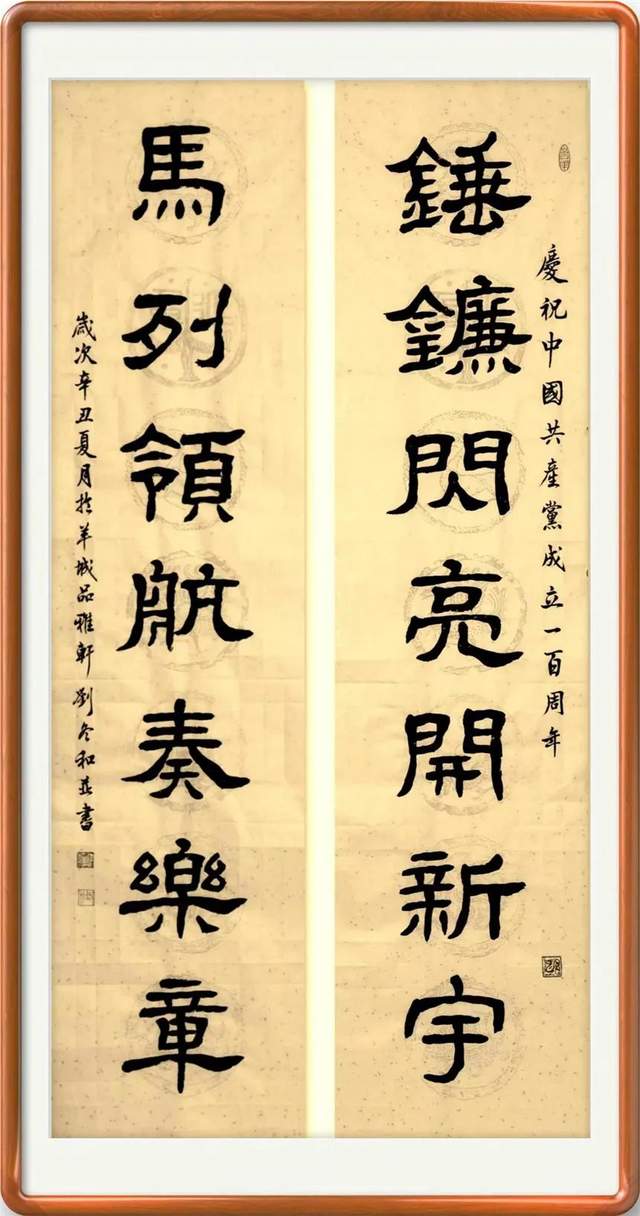 慶祝中國共產黨成立一百周年
錘鐮閃亮開新宇
馬列領航奏樂章
歲次辛丑夏月於羊城品雅軒劉冬和並書